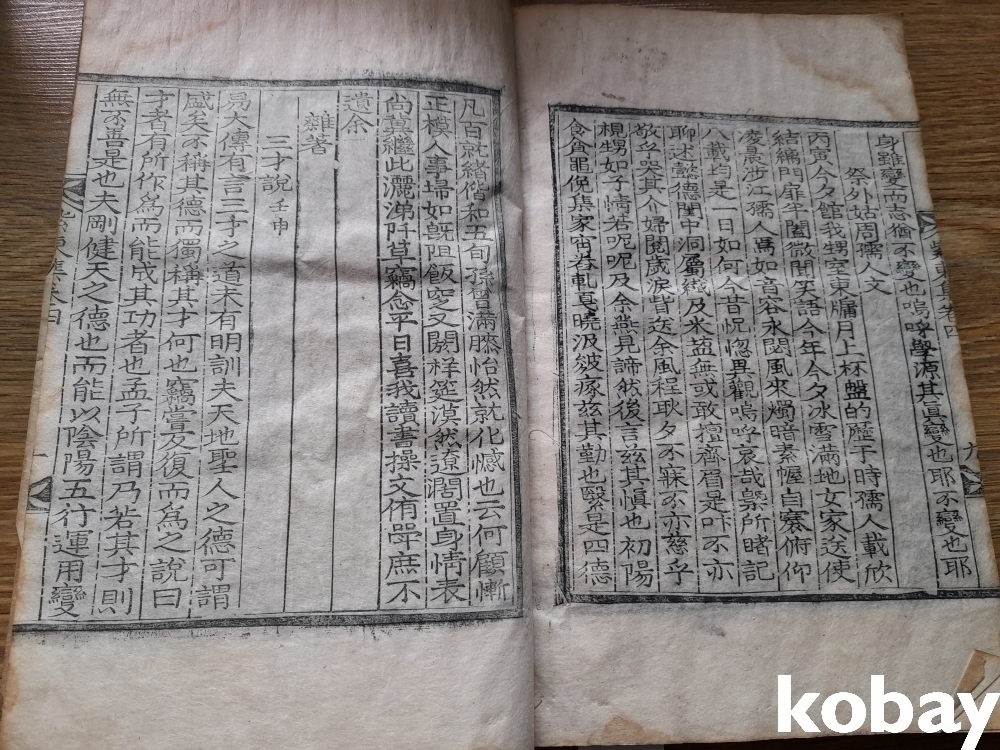 身雖變而志猶不變也嗚呼學源其眞變也耶不變也耶
祭外姑周孺人文
丙寅今夕館我甥室東牖月上杯盤的歷于時孺人載欣
結縭門扉半闔微聞笑語今年今夕冰雪滿地女家送使
凌晨涉江孺人焉如音容永閟風來燭暗素幄自褰俯仰
八載均是一日如何今昔怳惚異觀嗚呼哀哉槩所睹記
聊述懿德閨中洞屬織及米鹽無或敢擅齊眉是吁不亦
敬乎哭其介婦閱歲淚皆送余風程耿夕不寐不亦慈乎
視甥如子情若呢呢及余燕見諦然後言玆其愼也初陽
食食黽俛集家宙若軋夏曉汲皴瘃玆其勤也繄是四德
凡百就緖偕和五旬孫曾滿膝怡然就化憾也云何顧慚
正模人事埽如旣阻飯窆又闕祥筵漠然遼濶置身情表
尙冀繼此灑涕阡草竊念平日喜我讀書操文侑學庶不
遺余
雜著
三才說 壬申
易大傳有言三才之道未有明訓夫天地聖人之德可謂
盛矣不稱其德而獨稱其才何也竊嘗反復而爲之說曰
才者有所作爲而能成其功者也孟子所謂乃若其才則
無不善是也夫剛健天之德也而能以陰陽五行運用變
卷四
九
kobay